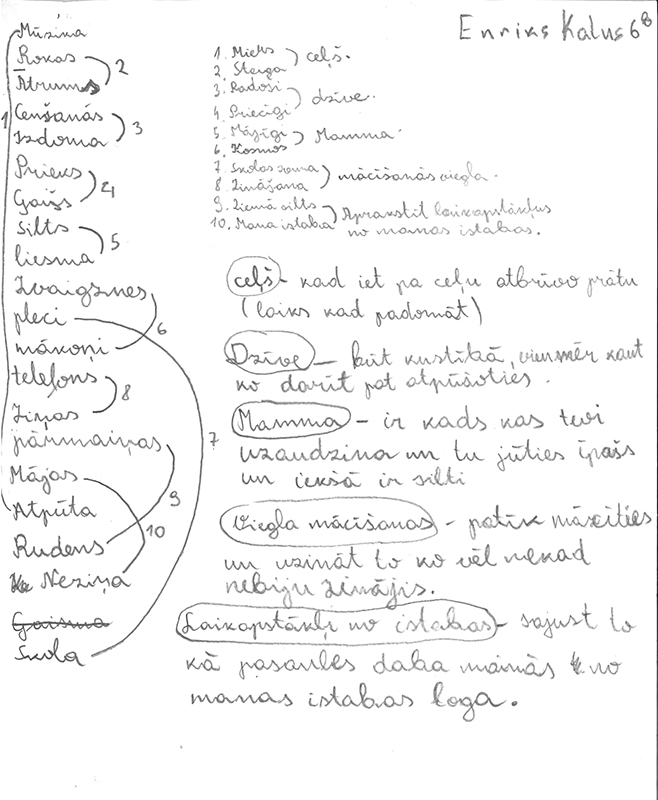 Enriks Kalus 6⁸
Mūzika
Rokas
Ātrums
2
1
Censanās
Izdoma
3
Prieks
Gaišs
4
Silts
liesma
5
Zvaigznes
pleci
mākoņi
6
telefons
Ziņas
8
pārmaiņas
7
Mājas
9
Atpūta
10
Rudens
Neziņa
Gaisma
Skola
1. Miers
2. Steiga
ceļš.
3. Radoši
4. Priecīgi
dzīve.
5. Mājīgi
6. Kosmos
Mamma.
7. Skolas soma
8. Zināšana
mācīšanās viegla.
9. Ziemā silts
10. Mana istaba
Aprakstīt laikapstākļus
no manas istabas.
ceļš - kad iet pa ceļu atbrīvo prātu
(laiks kad padomāt)
Dzīve - būt kustībā, vienmēr kaut
ko darīt pat atpūšoties.
Mamma - ir kāds kas tevi
uzaudzina un tu jūties īpašs
un iekšā ir silti
Viegla mācīšanas - patīk mācīties
un uzināt to ko vēl nekad
nebiju zinājis.
Laikapstākļi no istabas - sajust to
kā pasaules daba mainās no
manas istabas loga.